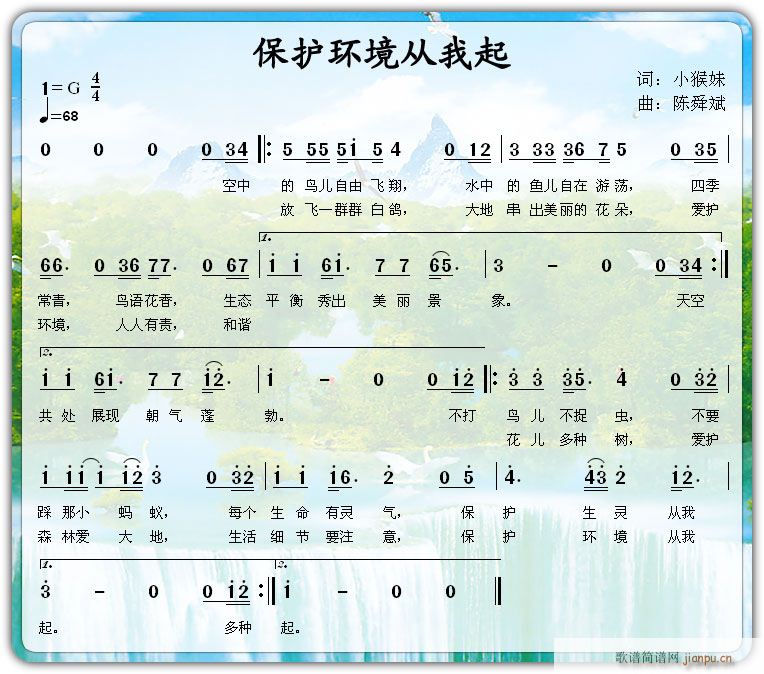 保护环境从我起
1=G 4/4
词：小猴妹
♩=68
曲：陈舜斌
0 0 0 0 34 ‖: 5 55 5i 5 4 0 12 | 3 33 36 7 5 0 35 |
空中 的 鸟儿自由 飞翔， 水中 的 鱼儿自在 游荡， 四季
放 飞一群群 白鸽， 大地 串 出美丽的 花朵， 爱护
1. 
66· 0 36 77· 0 67 | i i 6i· 7 7 65· | 3 - 0 0 34 :‖
常青， 鸟语花香， 生态 平 衡 秀出 美 丽 景 象。 天空
环境， 人人有责， 和谐
2.
i i 6i· 7 7 i2· | i - 0 0 i2 ‖: 3 3 35· 4 0 32 |
共 处 展现 朝 气 蓬 勃。 不打 鸟 儿 不捉 虫， 不要
花 儿 多种 树， 爱护
i iii i2 3 0 32 | i i i6· 2 0 5 | 4· 43 2 i2· |
踩 那小 蚂 蚁， 每个 生 命 有灵 气， 保 护 生 灵 从我
森 林爱 大 地， 生活 细 节 要注 意， 保 护 环 境 从我
1. 2.
3 - 0 0 i2 :‖ i - 0 0 ‖
起。 多种 起。
歌谱简谱网 jianpu.cn